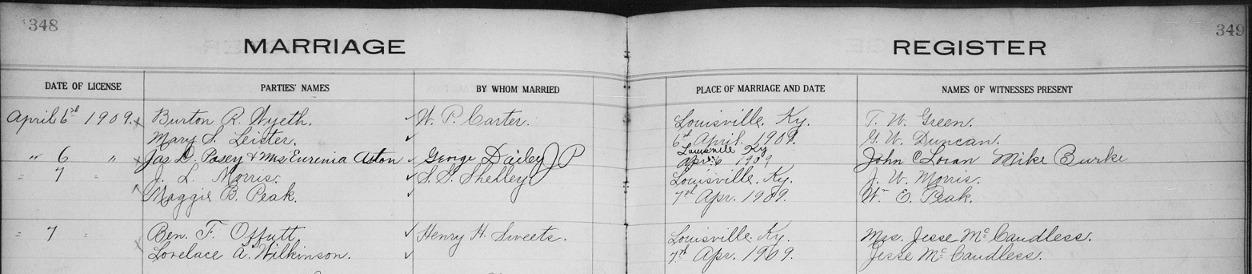 348 349
MARRIAGE REGISTER
DATE OF LICENSE PARTIES' NAMES BY WHOM MARRIED PLACE OF MARRIAGE AND DATE NAMES OF WITNESSES PRESENT
April 6th 1909. Burton R. Wyeth. W. P. Carter. Louisville, Ky. T. W. Green.
Mary S. Leister. 6th April, 1909. G. W. Duncan.
" 6 " Jas L. Posey & Mrs Eurenia Aston George Dailey JP Louisville Ky John C Loran Mike Burke
April 6 1909
" 7 J. L. Morris. S. S. Shelley Louisville, Ky. J. W. Morris.
Maggie B. Peak. 7th Apr. 1909. Wm E. Peak.
" 7 Ben. F. Offutt Henry H. Sweets. Louisville, Ky. Mrs. Jesse McCandless.
Lovelace A. Wilkinson. 7th Apr. 1909. Jesse McCandless.